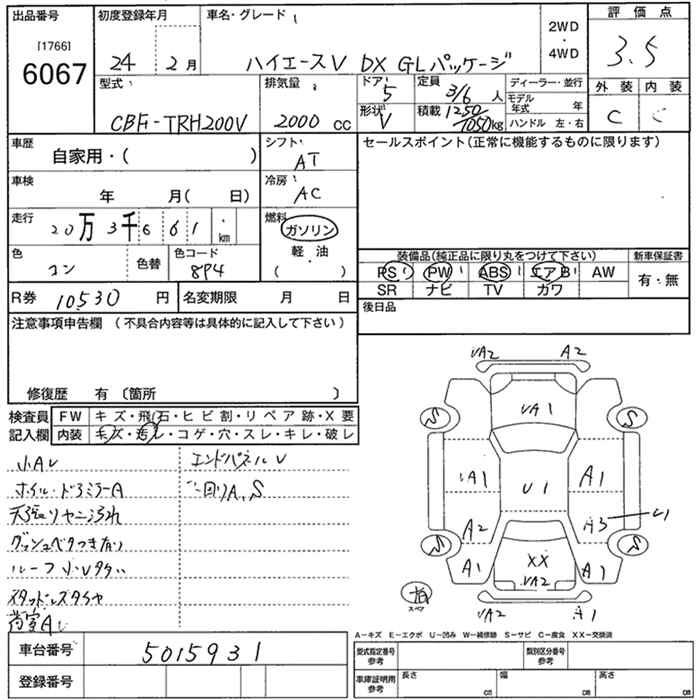 出品番号 初度登録年月 車名・グレード 2WD・4WD 評価点
[1766]
6067 24 2月 ハイエースV DX GLパッケージ 3.5
型式 排気量 ドア 定員 ディーラー・並行 外装 内装
CBF-TRH200V 2000 cc 5 3/6人 モデル年式 年 C C
形状 V 積載 1250/1050kg ハンドル 左・右
車歴 シフト セールスポイント(正常に機能するものに限ります)
自家用・( ) AT
車検 冷房
年 月( 日) AC
走行 燃料
20万3千661km ガソリン
軽・油
( )
色 色替 色コード 装備品(純品に限り丸をつけて下さい) 新車保証書
コン 8P4 PS PW ABS エアB AW 有・無
SR ナビ TV カワ
R券 10530円 名変期限 月 日 後日品
注意事項申告欄 (不具合内容等は具体的に記入して下さい)
修復歴 有 〔箇所 〕
検査員 FW キズ・飛石・ヒビ割・リペア跡・X要
記入欄 内装 キズ・汚レ・コゲ・穴・スレ・キレ・破レ
小AU エンドパネルU
ホイル・ドアミラーA A、S
ダッシュベタつき有り
スタッドレスタイヤ
UA2 A2
UA1
S S
UA1 U1 A1
A2 A3 U1
S S
A1 XX A1
UA2
スペア
UA2 A1
A−キズ E−エクボ U−凹み W−補修跡 S−サビ C−腐食 XX−交換済
車台番号 5015931 型式指定番号 参考 類別区分番号 参考
登録番号 車庫証明用 参考 長さ cm 幅 cm 高さ cm